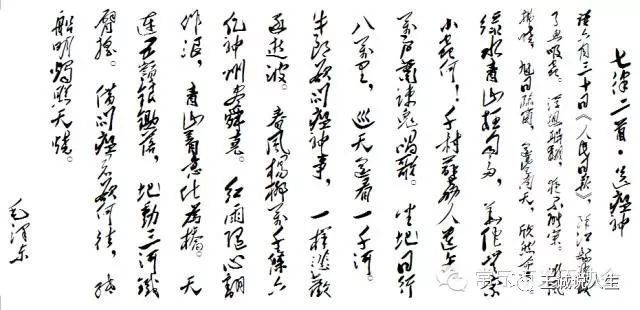 七律二首·送瘟神
读六月三十日《人民日报》，余江县消灭
了血吸虫。浮想联翩，夜不能寐。微风
拂晓，旭日临窗，遥望南天，欣然命
绿水青山枉自多，华佗无奈
小虫何！千村薜荔人遗矢，
万户萧疏鬼唱歌。坐地日行
八万里，巡天遥看一千河。
牛郎欲问瘟神事，一样悲欢
逐逝波。春风杨柳万千条，六
亿神州尽舜尧。红雨随心翻
作浪，青山着意化为桥。天
连五岭银锄落，地动三河铁
臂摇。借问瘟君欲何往，纸
船明烛照天烧。
毛泽东
王诚说人生